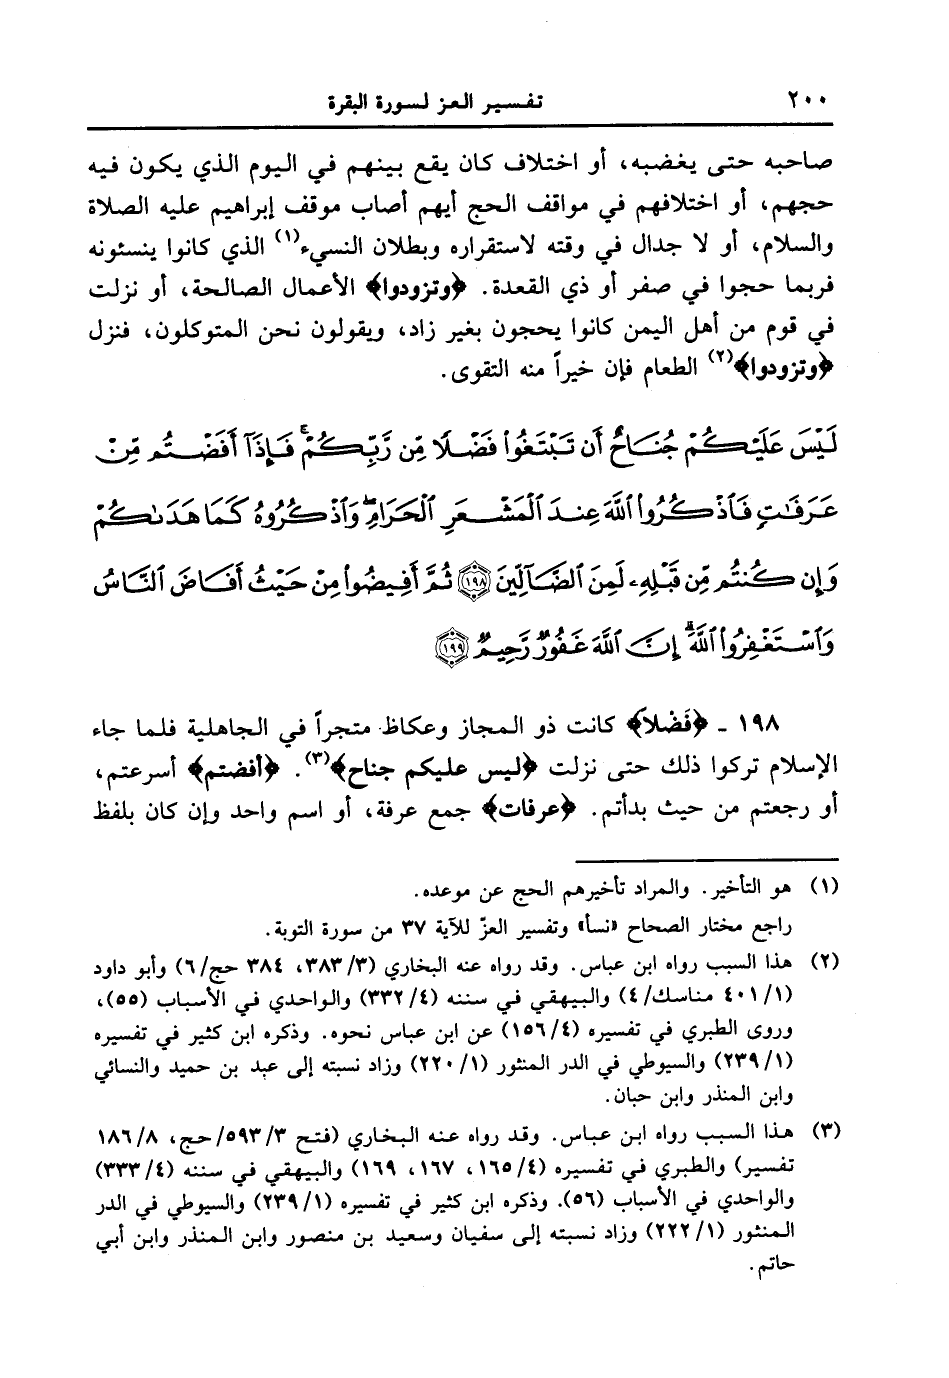 ٢٠٠ تفسير العز لسورة البقرة
صاحبه حتى يغضبه، أو اختلاف كان يقع بينهم في اليوم الذي يكون فيه
حجهم، أو اختلافهم في مواقف الحج أيهم أصاب موقف إبراهيم عليه الصلاة
والسلام، أو لا جدال في وقته لاستقراره وبطلان النسيء(١) الذي كانوا ينسئونه
فربما حجوا في صفر أو ذي القعدة. ﴿وتزودوا﴾ الأعمال الصالحة، أو نزلت
في قوم من أهل اليمن كانوا يحجون بغير زاد، ويقولون نحن المتوكلون، فنزل
﴿وتزودوا﴾(٢) الطعام فإن خيراً منه التقوى.
لَيْسَ عَلَيْكُمْ جُنَاحٌ أَن تَبْتَغُوا۟ فَضْلًا مِّن رَّبِّكُمْ ۚ فَإِذَآ أَفَضْتُم مِّنْ
عَرَفَـٰتٍ فَٱذْكُرُوا۟ ٱللَّهَ عِندَ ٱلْمَشْعَرِ ٱلْحَرَامِ ۖ وَٱذْكُرُوهُ كَمَا هَدَىٰكُمْ
وَإِن كُنتُم مِّن قَبْلِهِۦ لَمِنَ ٱلضَّآلِّينَ ١٩٨ ثُمَّ أَفِيضُوا۟ مِنْ حَيْثُ أَفَاضَ ٱلنَّاسُ
وَٱسْتَغْفِرُوا۟ ٱللَّهَ ۚ إِنَّ ٱللَّهَ غَفُورٌ رَّحِيمٌ ١٩٩
١٩٨ - ﴿فَضْلاً﴾ كانت ذو المجاز وعكاظ متجراً في الجاهلية فلما جاء
الإسلام تركوا ذلك حتى نزلت ﴿ليس عليكم جناح﴾(٣). ﴿أفضتم﴾ أسرعتم،
أو رجعتم من حيث بدأتم. ﴿عرفات﴾ جمع عرفة، أو اسم واحد وإن كان بلفظ
(١) هو التأخير. والمراد تأخيرهم الحج عن موعده.
راجع مختار الصحاح «نسأ» وتفسير العزّ للآية ٣٧ من سورة التوبة.
(٢) هذا السبب رواه ابن عباس. وقد رواه عنه البخاري (٣/٣٨٣، ٣٨٤ حج/٦) وأبو داود
(١/٤٠١ مناسك/٤) والبيهقي في سننه (٤/٣٣٢) والواحدي في الأسباب (٥٥)،
وروى الطبري في تفسيره (٤/١٥٦) عن ابن عباس نحوه. وذكره ابن كثير في تفسيره
(١/٢٣٩) والسيوطي في الدر المنثور (١/٢٢٠) وزاد نسبته إلى عبد بن حميد والنسائي
وابن المنذر وابن حبان.
(٣) هذا السبب رواه ابن عباس. وقد رواه عنه البخاري (فتح ٣/٥٩٣/حج، ٨/١٨٦
تفسير) والطبري في تفسيره (٤/١٦٥، ١٦٧، ١٦٩) والبيهقي في سننه (٤/٣٣٣)
والواحدي في الأسباب (٥٦). وذكره ابن كثير في تفسيره (١/٢٣٩) والسيوطي في الدر
المنثور (١/٢٢٢) وزاد نسبته إلى سفيان وسعيد بن منصور وابن المنذر وابن أبي
حاتم.